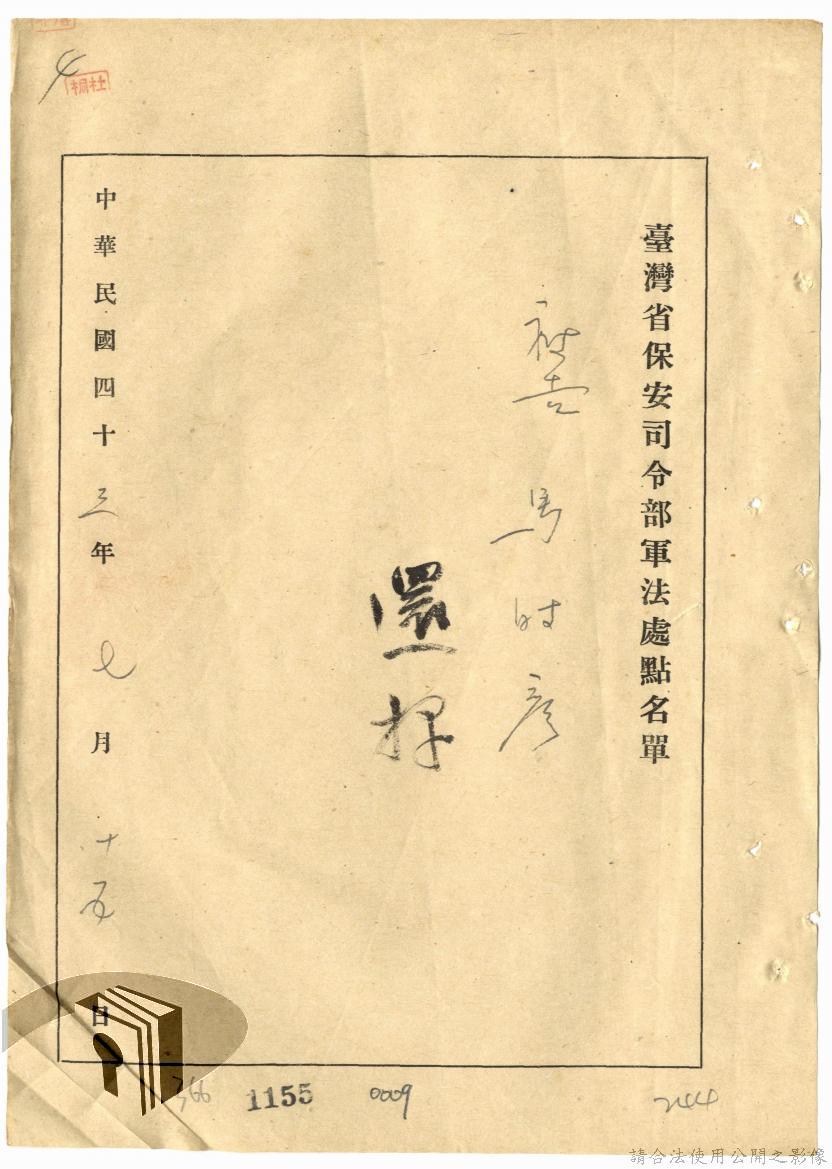 臺灣省保安司令部軍法處點名單
被告 馬時彥
還押
中華民國四十三年七月十五日
4
366
1155
0009
244
請合法使用公開之影像